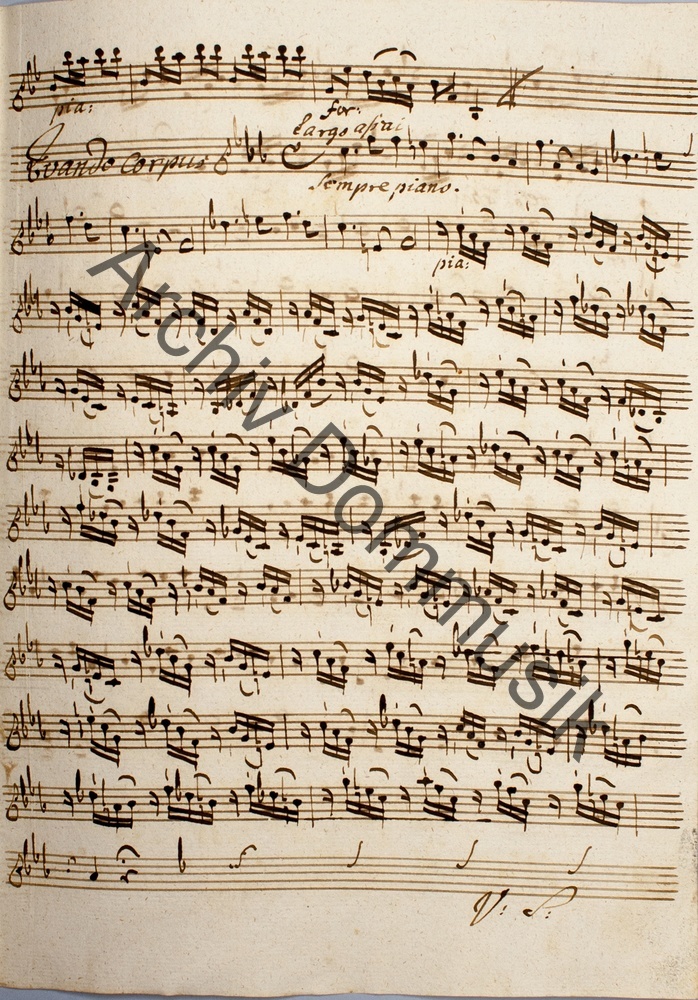 pia:
for:
Largo assai
Quando Corpus
sempre piano.
pia:
Archiv Dommusik
V: S: